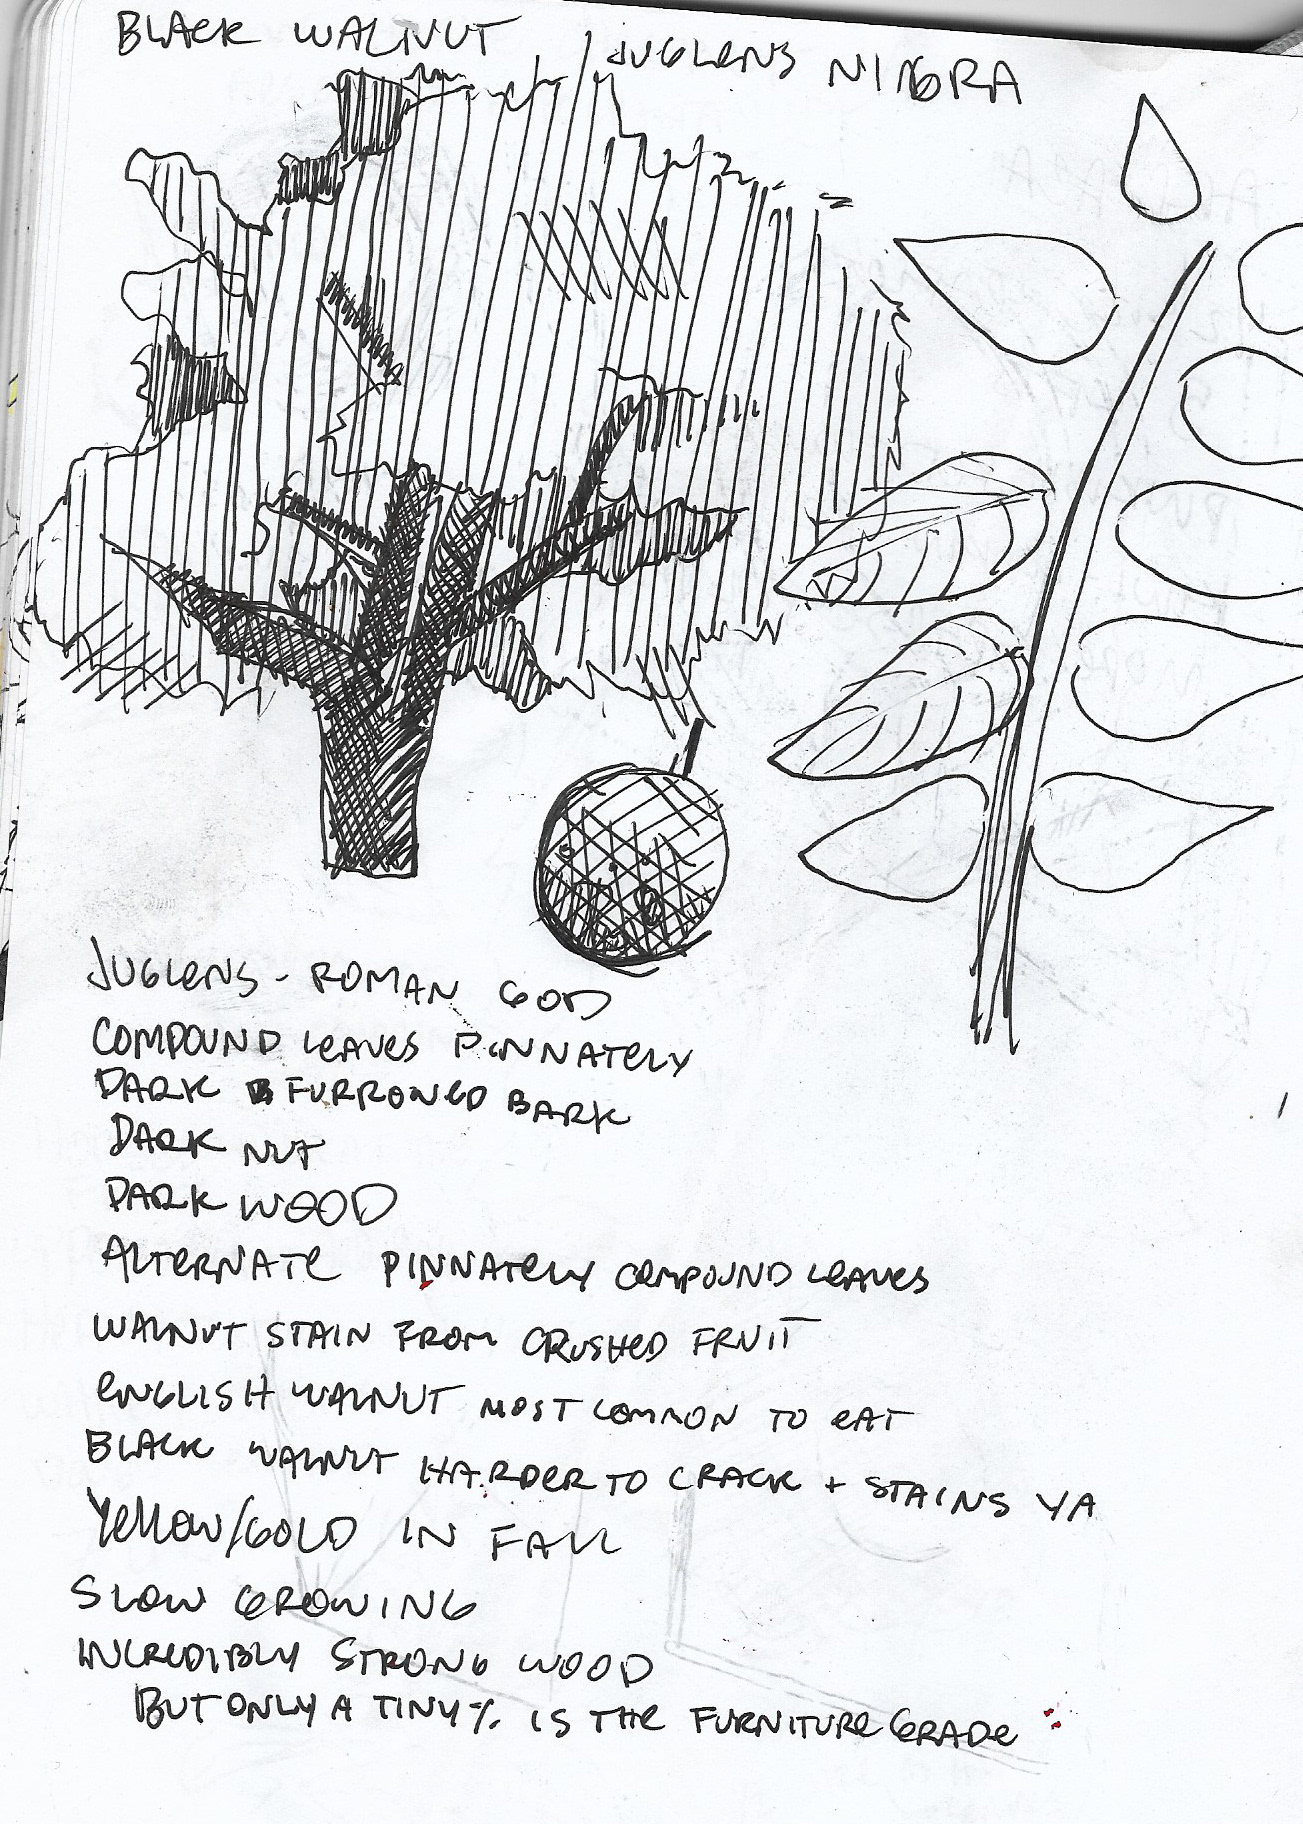 BLACK WALNUT / JUGLENS NIGRA
JUGLENS - ROMAN GOD
COMPOUND LEAVES PINNATELY
DARK FURROWED BARK
DARK NUT
DARK WOOD
ALTERNATE PINNATELY COMPOUND LEAVES
WALNUT STAIN FROM CRUSHED FRUIT
ENGLISH WALNUT MOST COMMON TO EAT
BLACK WALNUT HARDER TO CRACK + STAINS YA
YELLOW/GOLD IN FALL
SLOW GROWING
INCREDIBLY STRONG WOOD
BUT ONLY A TINY % IS THE FURNITURE GRADE